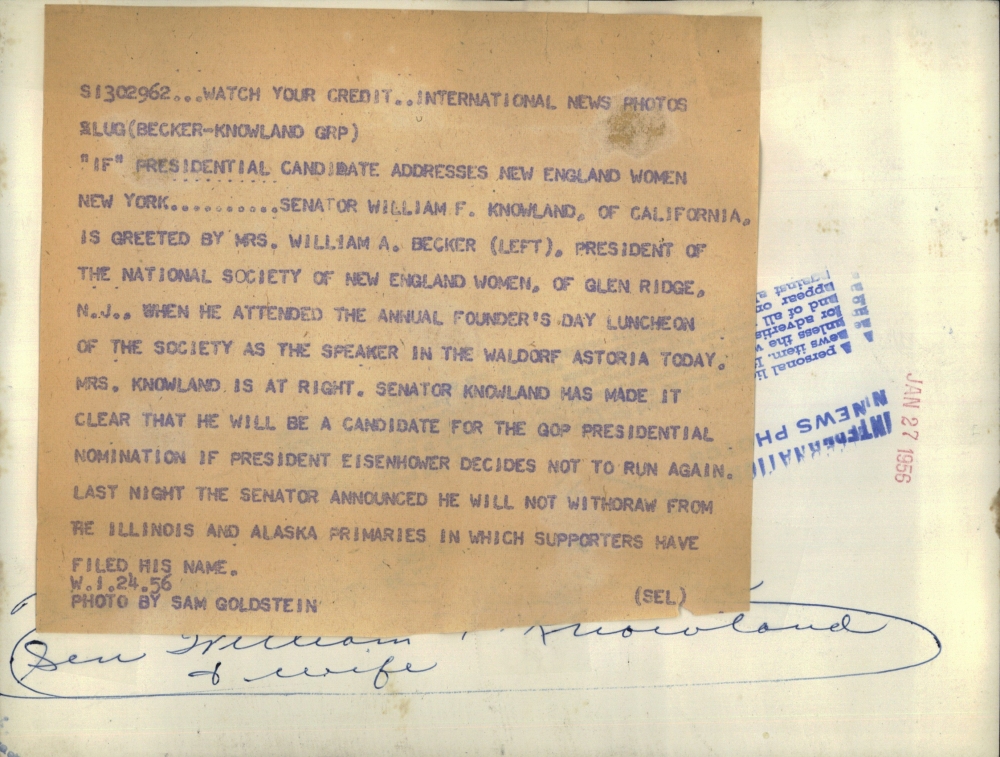 S1302962...WATCH YOUR CREDIT..INTERNATIONAL NEWS PHOTOS
SLUG(BECKER-KNOWLAND GRP)
"IF" PRESIDENTIAL CANDIDATE ADDRESSES NEW ENGLAND WOMEN
NEW YORK..........SENATOR WILLIAM F. KNOWLAND, OF CALIFORNIA,
IS GREETED BY MRS. WILLIAM A. BECKER (LEFT), PRESIDENT OF
THE NATIONAL SOCIETY OF NEW ENGLAND WOMEN, OF GLEN RIDGE,
N.J., WHEN HE ATTENDED THE ANNUAL FOUNDER'S DAY LUNCHEON
OF THE SOCIETY AS THE SPEAKER IN THE WALDORF ASTORIA TODAY.
MRS. KNOWLAND IS AT RIGHT. SENATOR KNOWLAND HAS MADE IT
CLEAR THAT HE WILL BE A CANDIDATE FOR THE GOP PRESIDENTIAL
NOMINATION IF PRESIDENT EISENHOWER DECIDES NOT TO RUN AGAIN.
LAST NIGHT THE SENATOR ANNOUNCED HE WILL NOT WITHDRAW FROM
THE ILLINOIS AND ALASKA PRIMARIES IN WHICH SUPPORTERS HAVE
FILED HIS NAME.
W.1.24.56
PHOTO BY SAM GOLDSTEIN (SEL)
Sen William F. Knowland
& wife
JAN 27 1956
NEWS PH
personal li
news item.
unless the
for advertis
and of all
appear on
against a